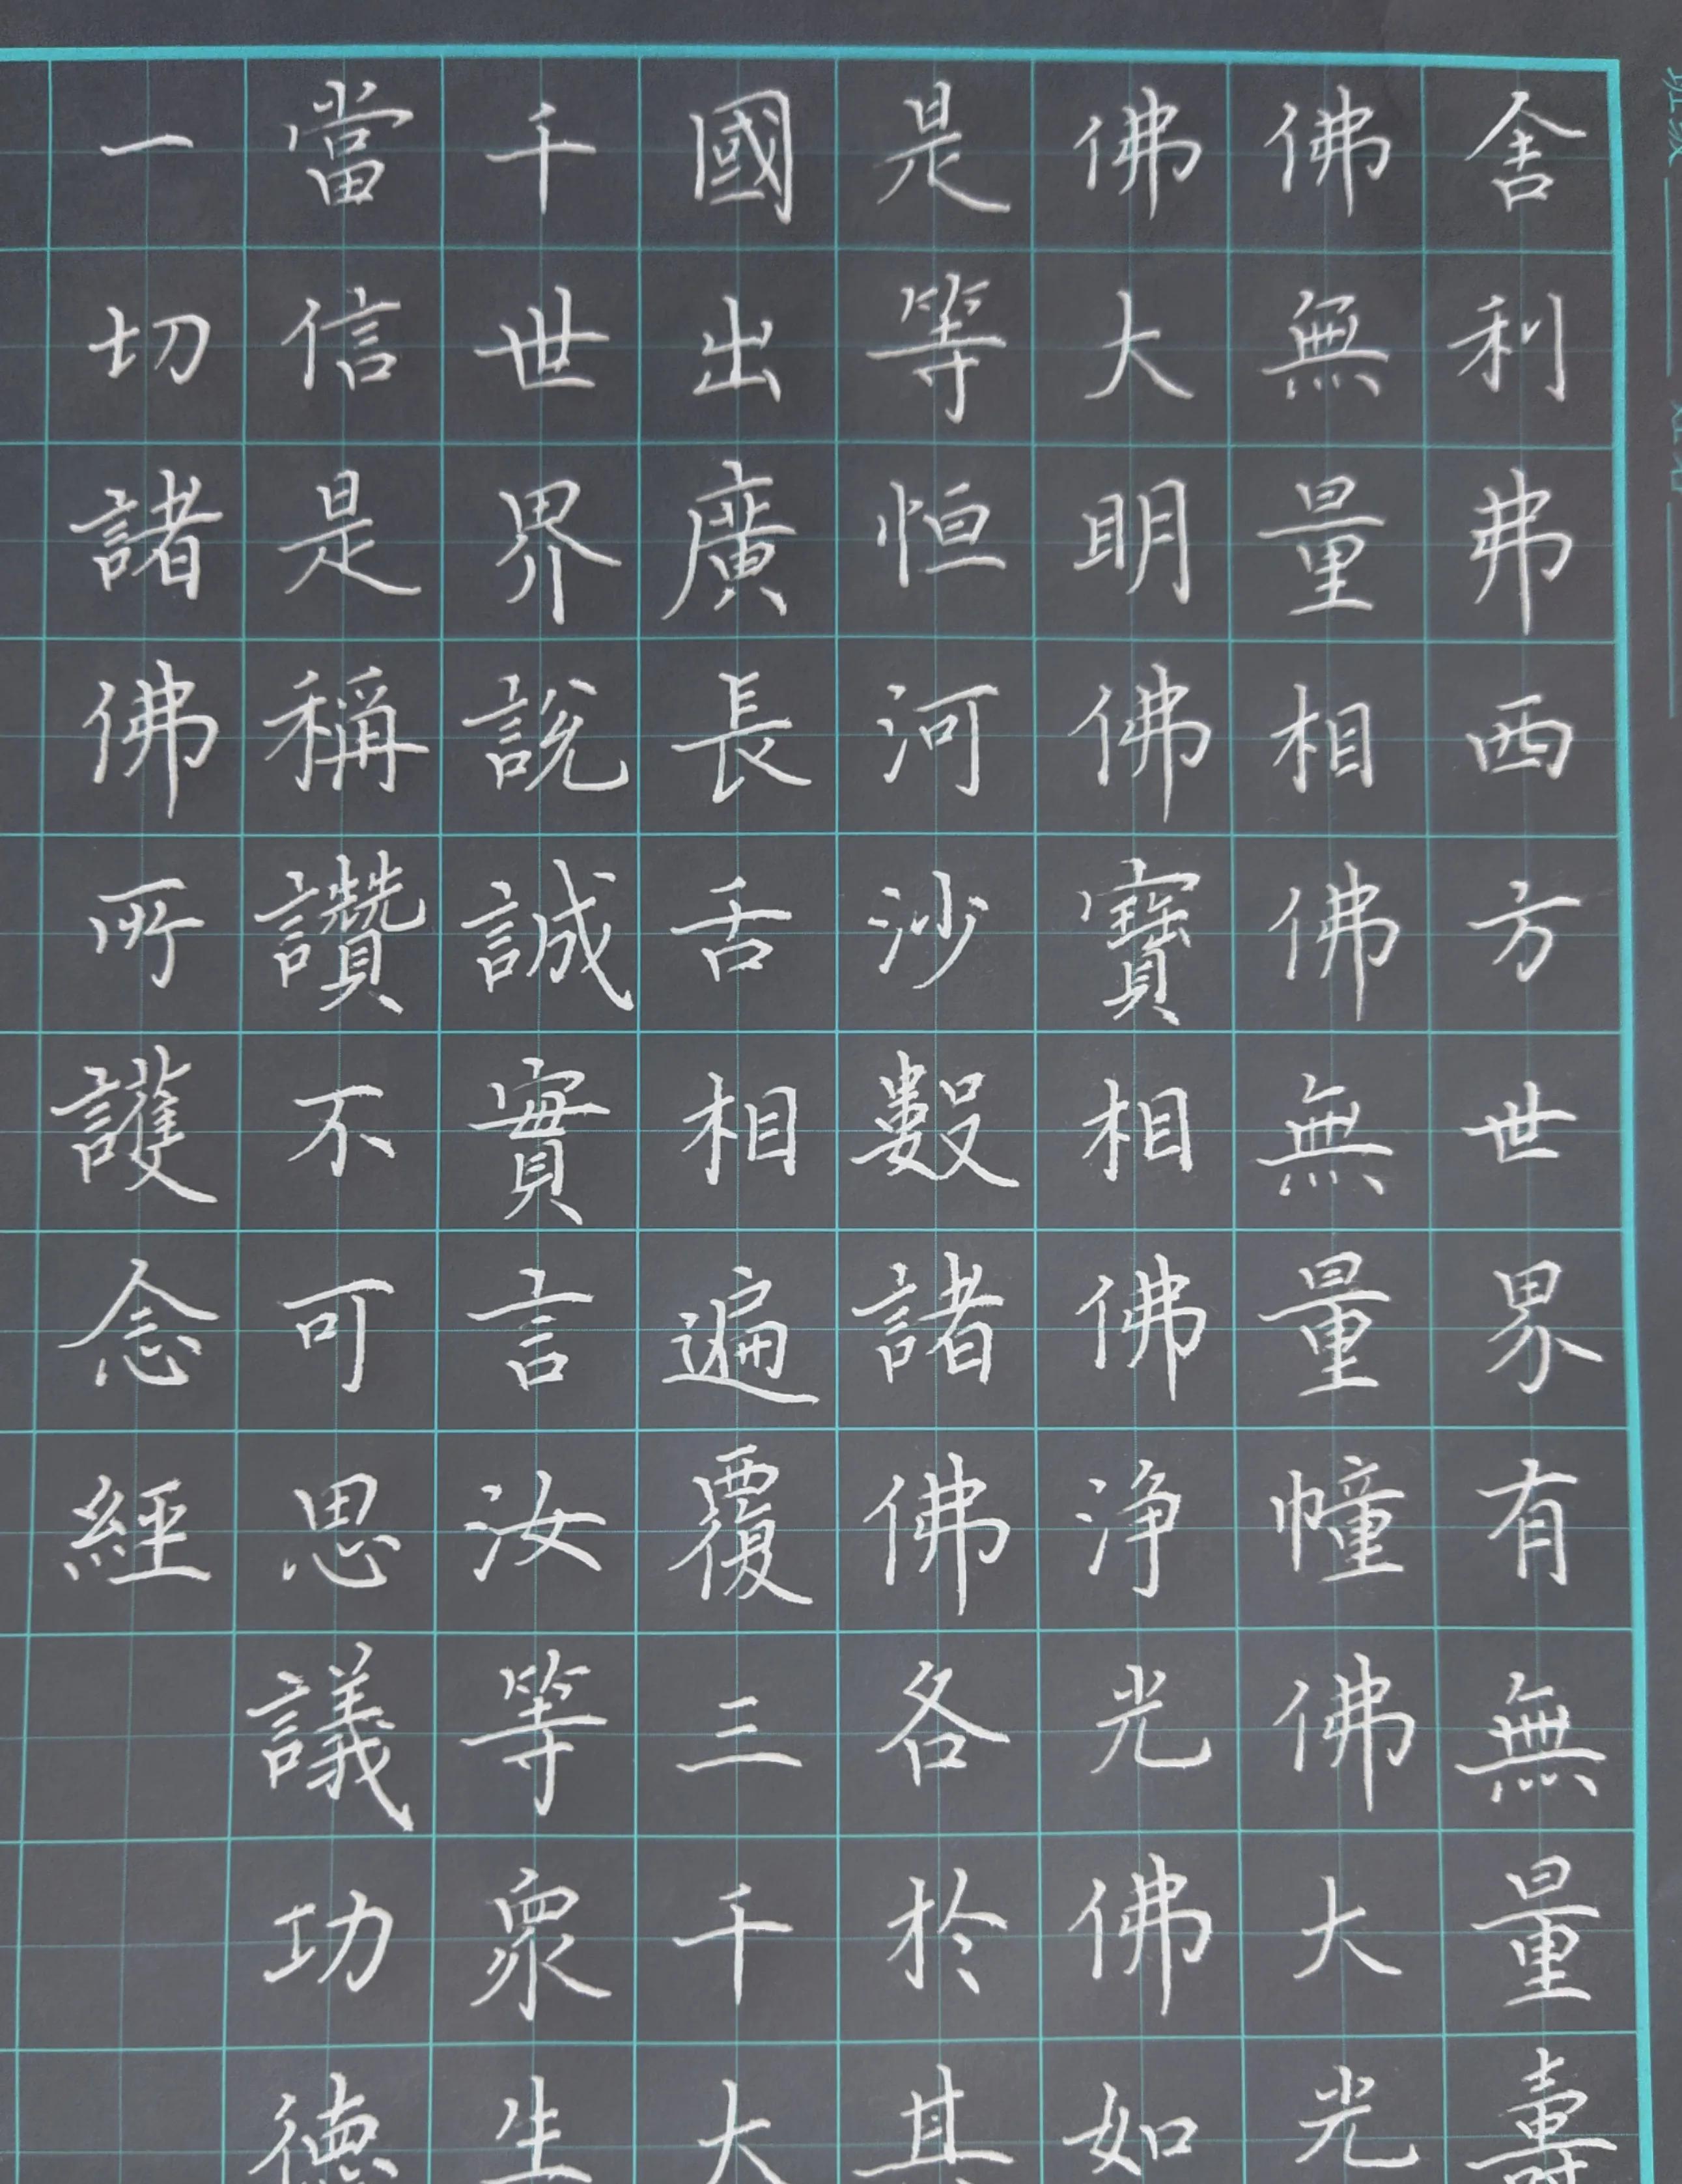 舍利弗西方世界有無量壽
佛無量相佛無量幢佛大光
佛大明佛寶相佛淨光佛如
是等恒河沙數諸佛各於其
國出廣長舌相遍覆三千大
千世界說誠實言汝等眾生
當信是稱讚不可思議功德
一切諸佛所護念經